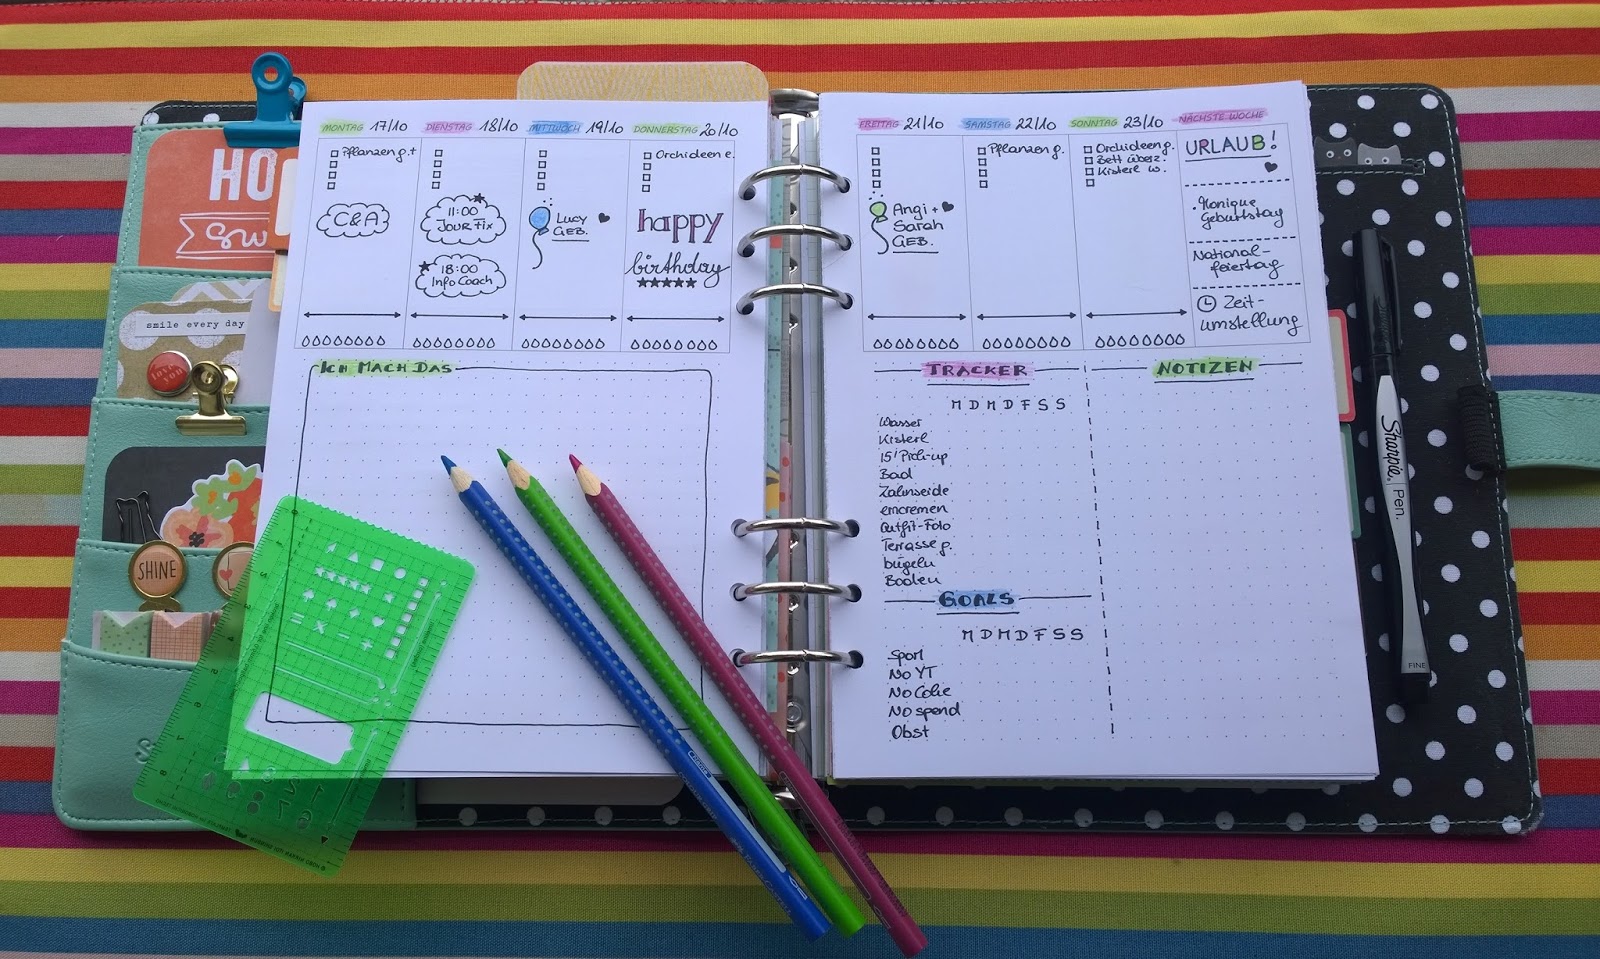 HO
smile every day
love you
SHINE
MONTAG 17/10
Pflanzen g. +
C&A
DIENSTAG 18/10
11:00
JOUR fix
18:00
Info Coach
MITTWOCH 19/10
Lucy
GEB.
DONNERSTAG 20/10
Orchideen e.
happy
birthday
ICH MACH DAS
FREITAG 21/10
Angi +
Sarah
GEB.
SAMSTAG 22/10
Pflanzen g.
SONNTAG 23/10
Orchideen g.
Bett überz.
Kisterl w.
NÄCHSTE WOCHE
URLAUB!
Monique
Geburtstag
National-
feiertag
Zeit-
umstellung
TRACKER
M D M D F S S
Wasser
Kisterl
15' Pick-up
Bad
Zahnseide
emcremen
Outfit-Foto
Terrasse g.
bügeln
Boden
GOALS
M D M D F S S
Sport
No YT
No Colie
No spend
Obst
NOTIZEN
Sharpie. Pen.
FINE